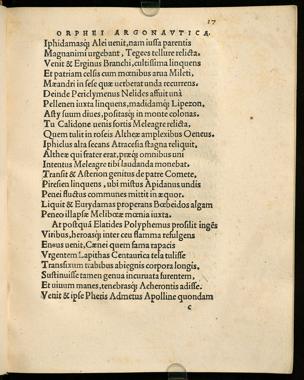 17
ORPHEI ARGONAVTICA.
Iphidamasq; Alei uenit, nam iussa parentis
Magnanimi urgebant, Tegees tellure relicta.
Venit & Erginus Branchi, cultissima linquens
Et patriam celsis cum mœnibus arua Mileti,
Mæandri in sese quæ uerberat unda recurrens.
Deinde Periclymenus Nelides assuit unà
Pellenen iuxta linquens, madidamq; Lipezon,
Asty suum diues, positasq; in monte colonas.
Tu Calidone uenis fortis Meleagre relicta,
Quem tulit in roseis Altheæ amplexibus Oeneus.
Iphiclus alta secans Atracesia stagna reliquit,
Altheæ qui frater erat, præq; omnibus uni
Intentus Meleagre tibi laudanda monebat.
Transit & Asterion genitus de patre Comete,
Piresien linquens, ubi mistus Apidanus undis
Penei fluctus communes mittit in æquor.
Liquit & Eurydamas properans Bœbeidos algam
Peneo illapsæ Melibœæ mœnia iuxta.
At postquã Elatides Polyphemus prosilit ingẽs
Viribus, heroasq; inter ceu flamma refulgens
Eneus uenit, Cænei quem fama rapacis
Vrgentem Lapithas Centaurica tela tulisse
Transfixum trabibus abiegnis corpora longis,
Sustinuisse tamen genua incuruata furentem,
Et uiuum manes, tenebrasq; Acherontis adisse.
Venit & ipse Pheris Admetus Apolline quondam
c